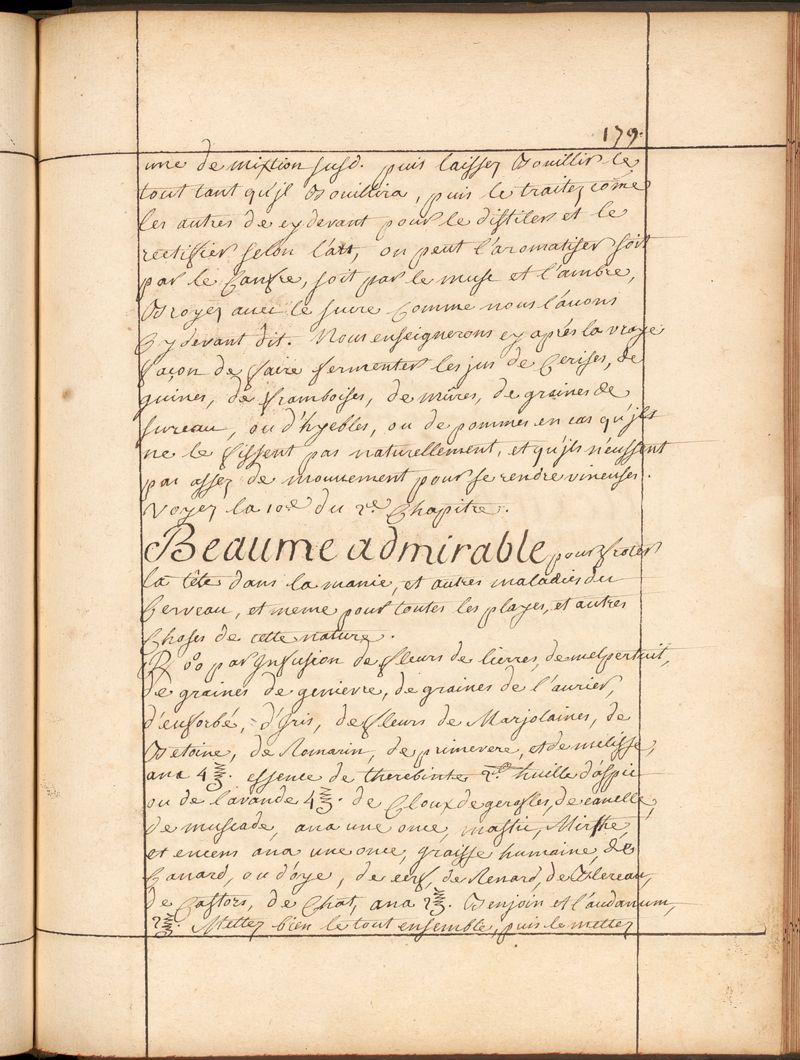 179.
une de mixtion susd. puis laissez Bouillir le
tout tant qu'jl Bouillira, puis le traitez côme
les autres de cy devant pour le distiler et le
rectifier selon l'art, on peut l'aromatiser soit
par le Canfre, soit par le musc et l'ambre,
Broyez avec le sucre Comme nous l'avons
Cy devant dit. Nous enseignerons cy aprés la vraye
façon de faire fermenter les jus de Cerises, de
guines, de framboises, de mûres, de graines de
sureau, ou d'hyebles, ou de pommes en cas qu'jls
ne le fissent pas naturellement, et qu'jls n'eussent
pas assez de mouvement pour se rendre vineuses.
Voyez la 10e. du 2e. Chapitre.
Beaume admirable pour froter
la tête dans la manie, et autres maladies du
Cerveau, et meme pour toutes les playes, et autres
Choses de cette nature.
par Infusion de fleurs de lierres, de melpertuit,
de graines de genievre, de graines de l'aurier,
d'euforbe, d'Iris, de fleurs de Marjolaines, de
Betoine, de Romarin, de primevere, et de melisse,
ana 4 ℥. essence de therebinte huille d'aspic
ou de lavande 4 ℥. de Cloux de gerofles, de canelle,
de muscade, ana une once, mastic, Mirrhe,
et encens ana une once, graisse humaine, de
Canard, ou d'oye, de cerf, de Renard, de Blereau,
de Castors, de Chat, ana 2 ℥. Benjoin et l'audanum,
2 ℥. Mettez bien le tout ensemble, puis le mettez